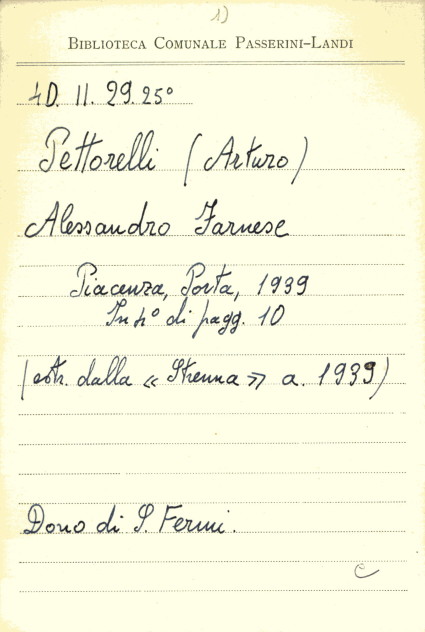 1)
BIBLIOTECA COMUNALE PASSERINI-LANDI
4D. 11. 29. 25°
Pettorelli (Arturo)
Alessandro Farnese
Piacenza, Porta, 1939
In 4° di pagg. 10
(estr. dalla « Strenna » a. 1939)
Dono di S. Fermi.
C